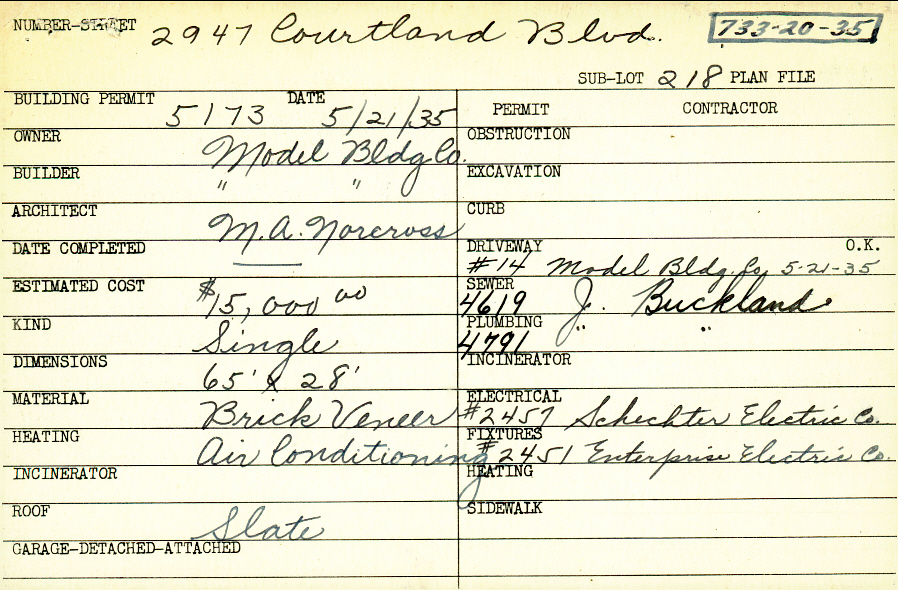 NUMBER-STREET 2947 Courtland Blvd. 733-20-35
SUB-LOT 218 PLAN FILE
BUILDING PERMIT 5173 DATE 5/21/35
PERMIT CONTRACTOR
OWNER Model Bldg Co.
OBSTRUCTION
BUILDER " "
EXCAVATION
ARCHITECT M.A. Norcross
CURB
DATE COMPLETED —
DRIVEWAY #14 Model Bldg. Co. 5-21-35 O.K.
ESTIMATED COST $15,000 00
SEWER 4619 J. Buckland
KIND Single
PLUMBING 4791 " "
DIMENSIONS 65' x 28'
INCINERATOR
MATERIAL Brick Veneer
ELECTRICAL #2457 Schechter Electric Co.
HEATING Air Conditioning
FIXTURES #2451 Enterprise Electric Co.
INCINERATOR
HEATING
ROOF Slate
SIDEWALK
GARAGE-DETACHED-ATTACHED